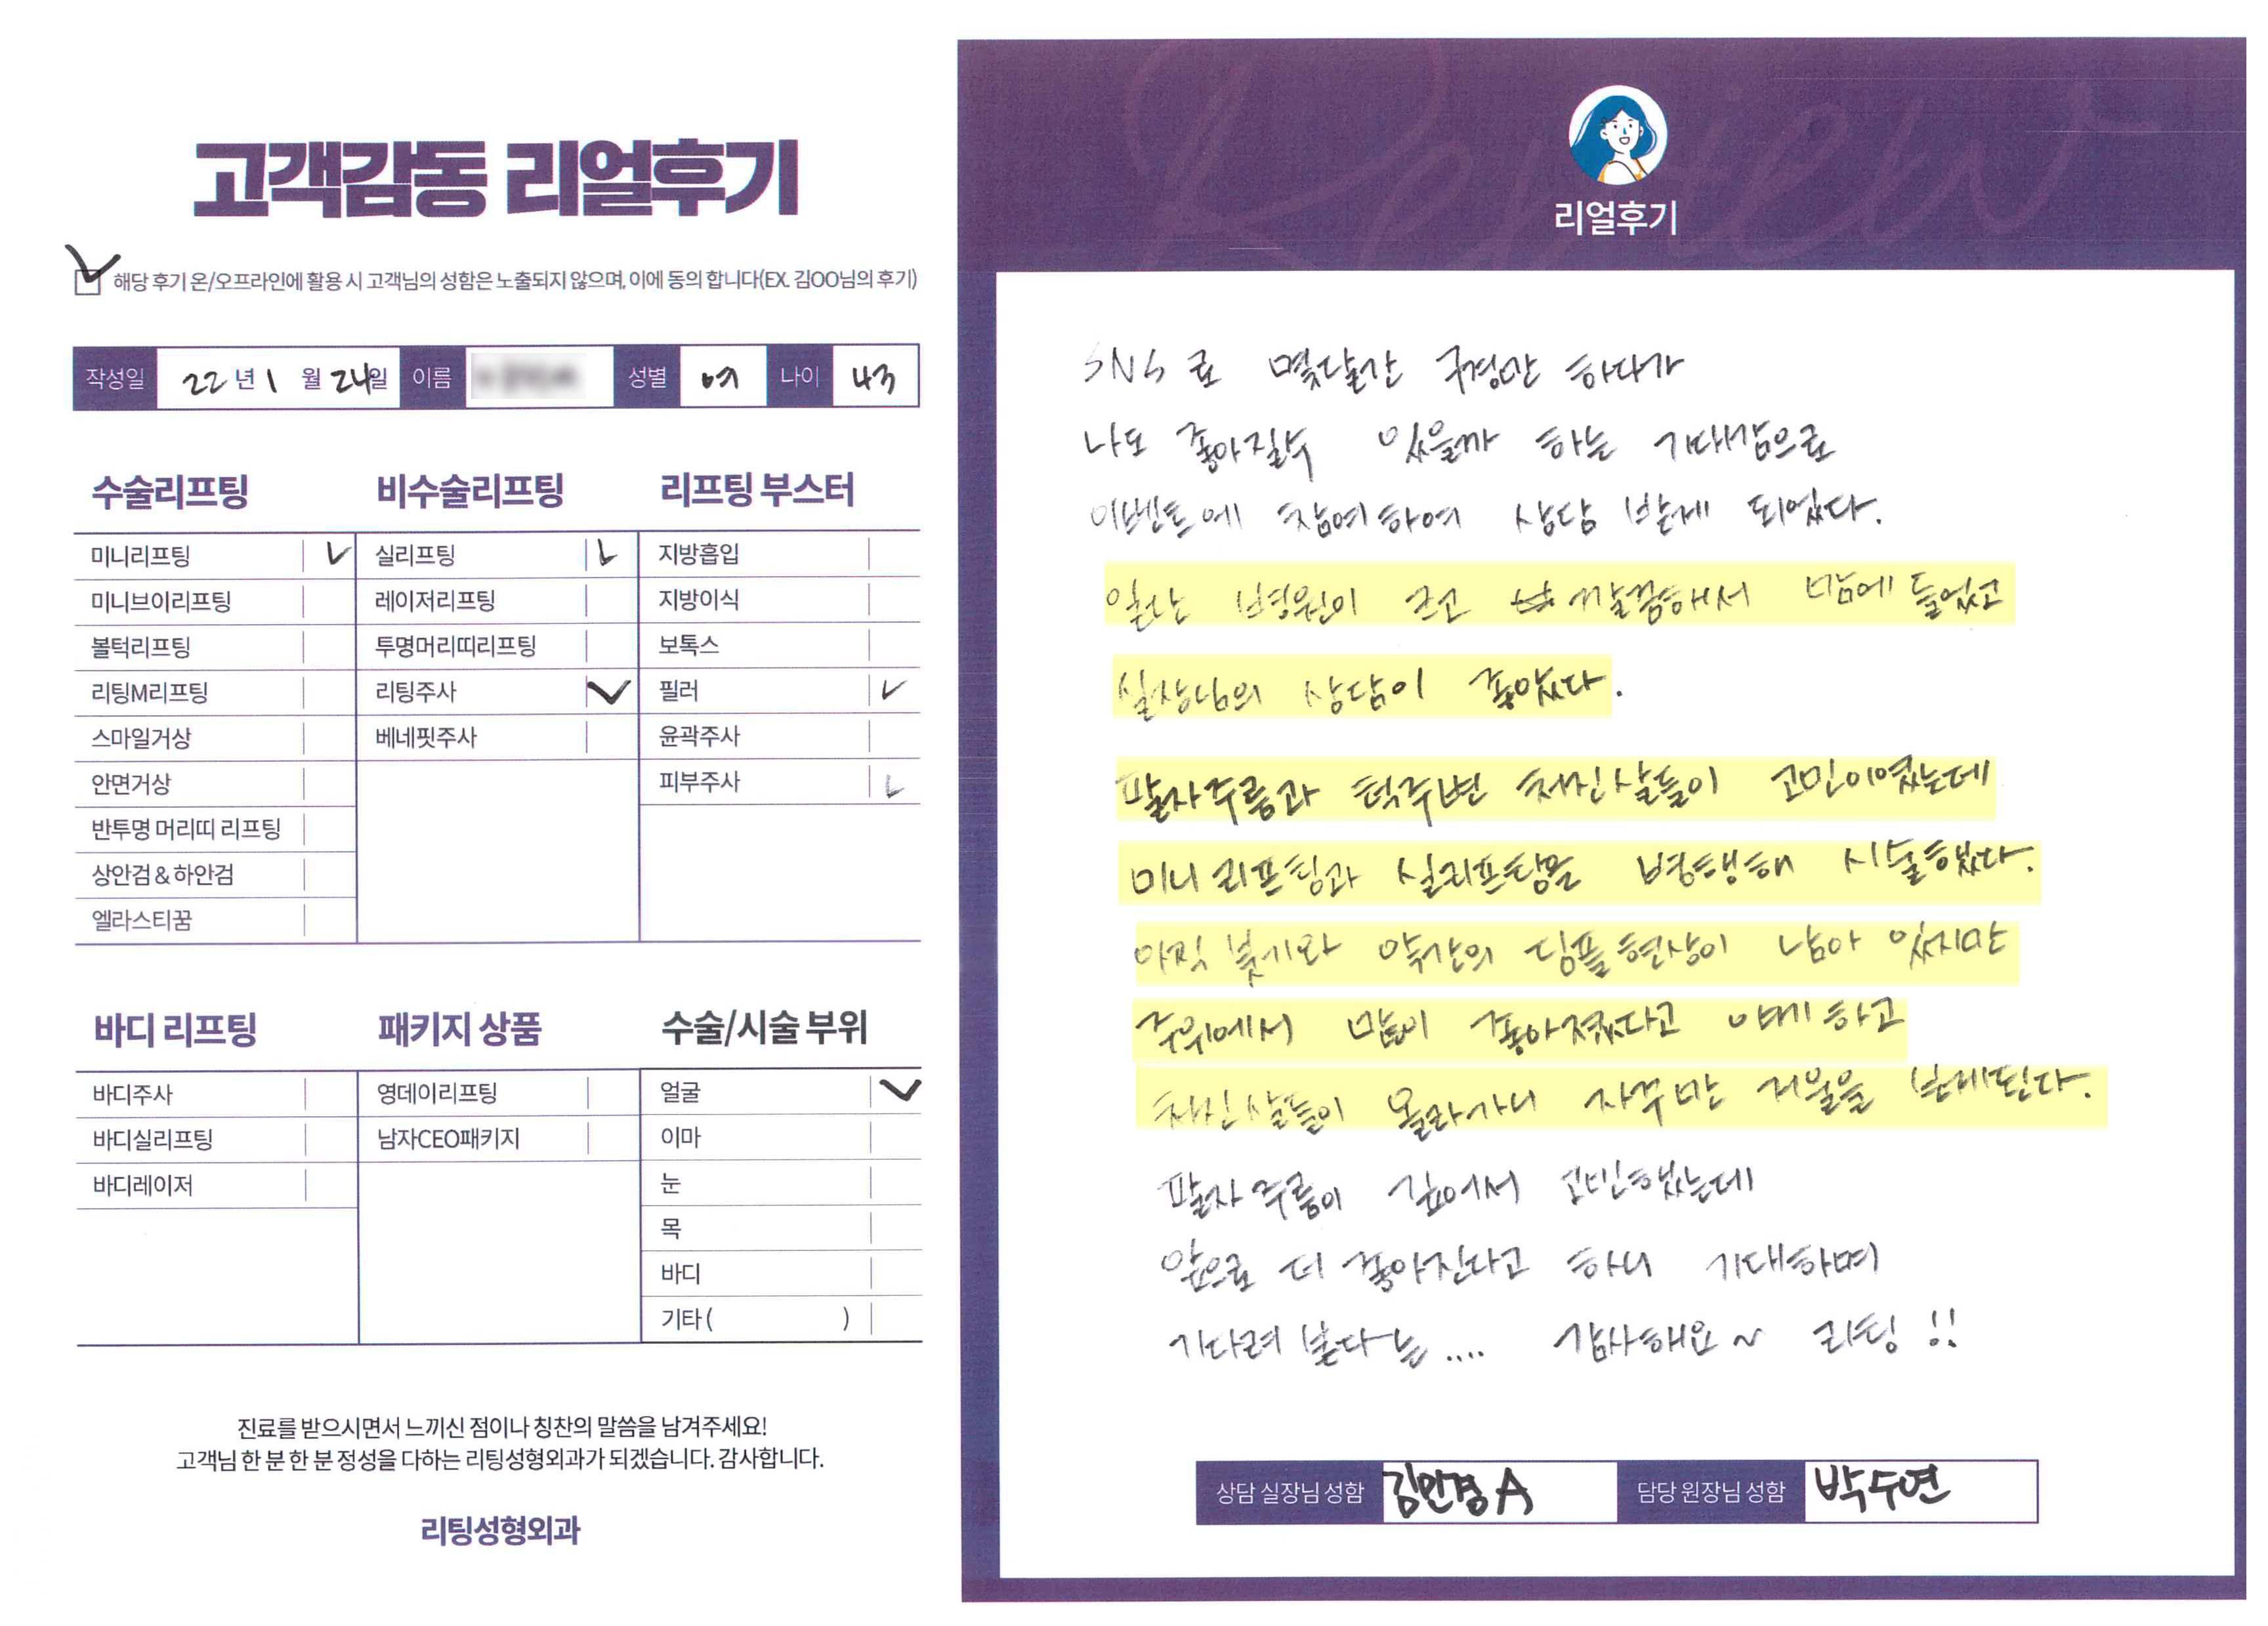 고객감동 리얼후기
해당 후기 온/오프라인에 활용 시 고객님의 성함은 노출되지 않으며, 이에 동의 합니다(EX. 김OO님의 후기)
작성일 22년 1월 24일 이름 성별 여 나이 43
수술리프팅
미니리프팅
미니브이리프팅
볼턱리프팅
리팅M리프팅
스마일거상
안면거상
반투명 머리띠 리프팅
상안검 & 하안검
엘라스티꿈
비수술리프팅
실리프팅
레이저리프팅
투명머리띠리프팅
리팅주사
베네핏주사
리프팅 부스터
지방흡입
지방이식
보톡스
필러
윤곽주사
피부주사
바디 리프팅
바디주사
바디실리프팅
바디레이저
패키지 상품
영데이리프팅
남자CEO패키지
수술/시술 부위
얼굴
이마
눈
목
바디
기타 ( )
진료를 받으시면서 느끼신 점이나 칭찬의 말씀을 남겨주세요!
고객님 한 분 한 분 정성을 다하는 리팅성형외과가 되겠습니다. 감사합니다.
리팅성형외과
Review
리얼후기
SNS로 몇달간 구경만 하다가
나도 좋아질수 있을까 하는 기대감으로
이벤트에 참여하여 상담 받게 되었다.
일단 병원이 크고 깔끔해서 맘에 들었고
실장님의 상담이 좋았다.
팔자주름과 턱주변 쳐진살들이 고민이였는데
미니리프팅과 실리프팅을 병행해 시술했다.
아직 붓기와 약간의 딤플현상이 남아 있지만
주위에서 많이 좋아졌다고 얘기하고
쳐진살들이 올라가니 자꾸만 거울을 보게된다.
팔자주름이 깊어서 고민했는데
앞으로 더 좋아진다고 하니 기대하며
기다려 본다는.... 감사해요~ 리팅!!
상담 실장님 성함 김민경A 담당 원장님 성함 박수연